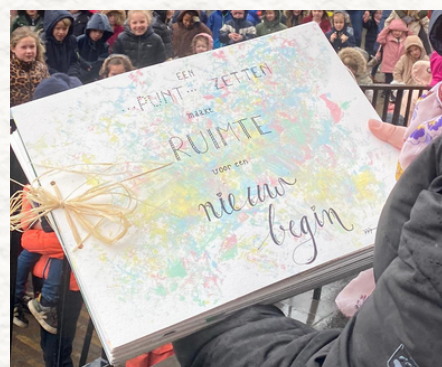 EEN
...PUNT... ZETTEN
maakt
RUIMTE
voor een
nieuw
begin